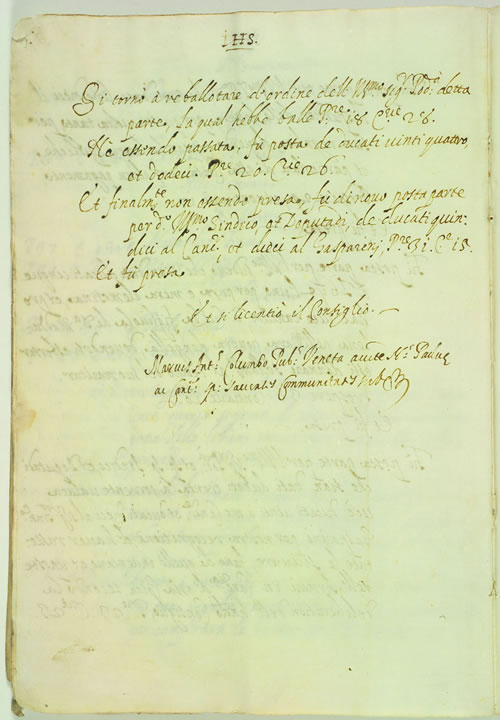 IHS.
Si tornò à reballotare d'ordine dell' Ill.mo sig.r Pod.à detta
parte, la qual hebbe balle P. 18. C. 28.
Nè essendo passata, fù posta de ducati vinti quattro,
et dodeci. P. 20. C. 26.
Et finalm.te non essendo presa, fù di nuovo posta parte
per d.o Ill.mo Sindico, et Deputati, de ducati quin-
dici al Canc.r, et dieci al Gaspareni, P. 31. C. 15.
Et fù presa.
Et si licentiò il Consiglio.
Marcus Ant.s Columbo Pub.s Veneta aucte Not.s Paduæ
ac Sauratis Communitatis